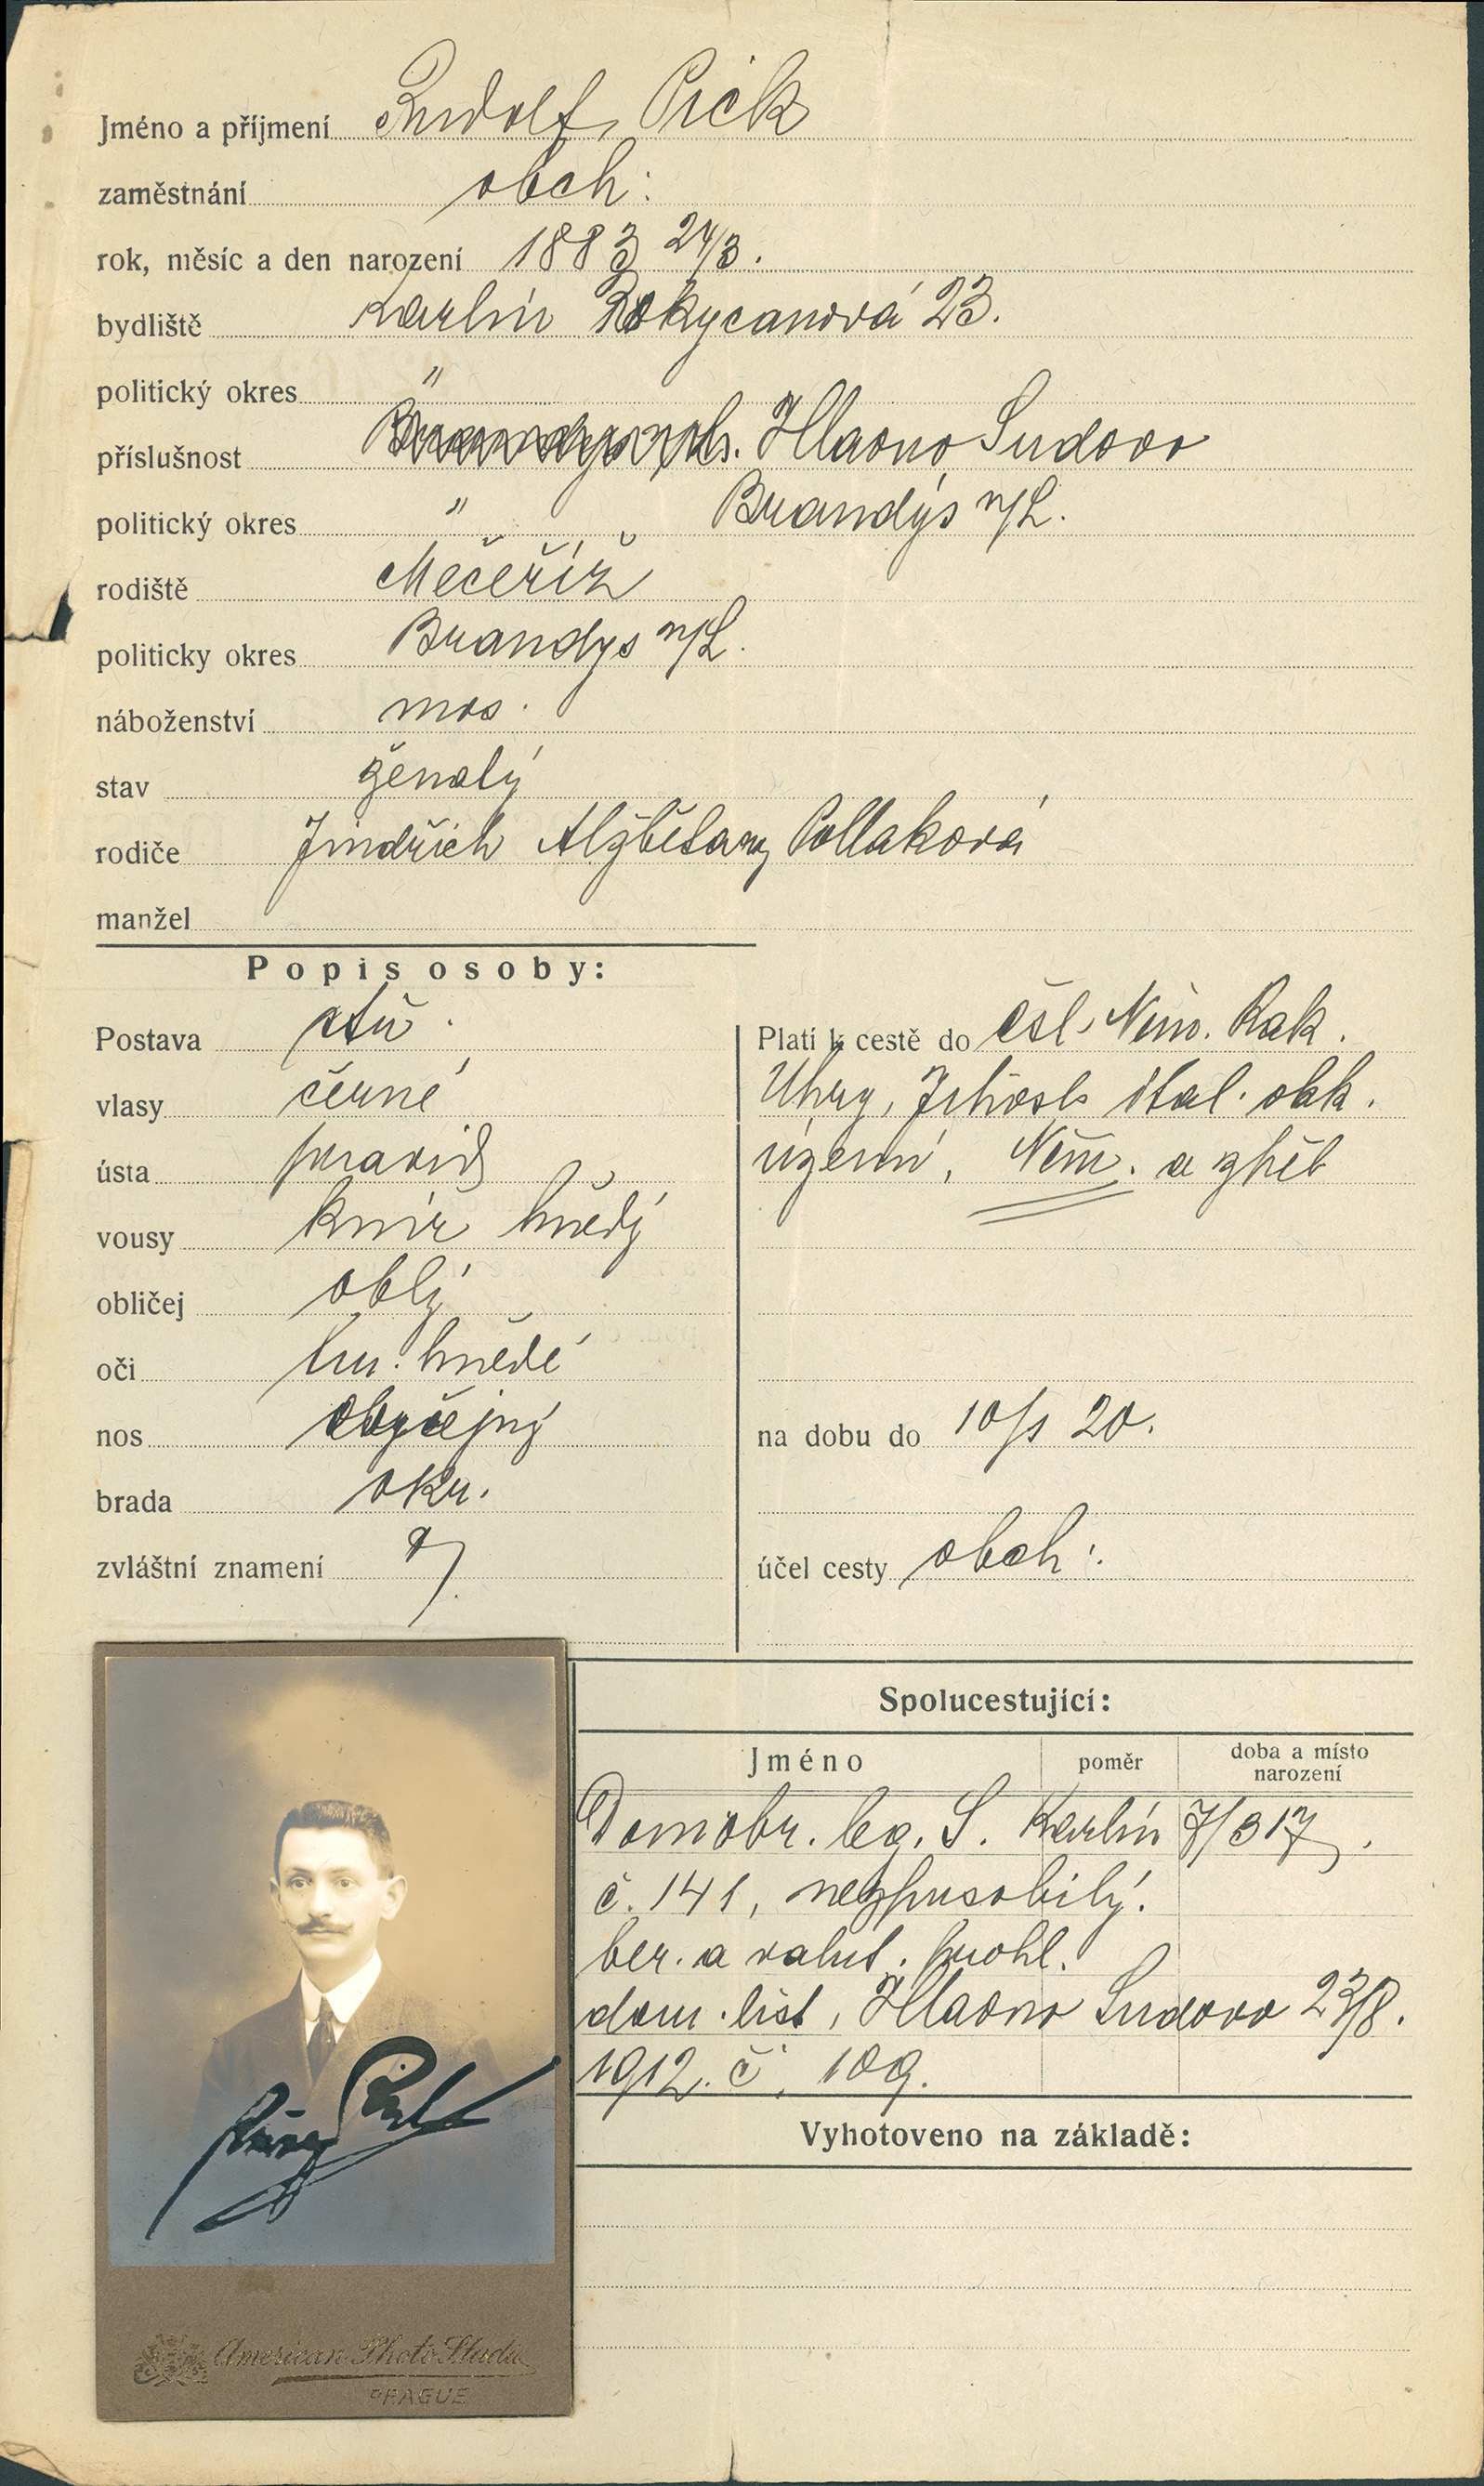 Jméno a příjmení Rudolf Pick
zaměstnání obch:
rok, měsíc a den narození 1883 24/3.
bydliště Karlín Rokycanova 23.
politický okres "
příslušnost Hlavno Sudovo
politický okres " Brandýs n/L.
rodiště Mečeříž
politicky okres Brandys n/L.
náboženství mos.
stav ženatý
rodiče Jindřich Alžběta Pollaková
manžel
Popis osoby:
Postava stř.
vlasy černé
ústa pravid
vousy knír hnědý
obličej oblý
oči tm. hnědé
nos obyčejný
brada okr.
zvláštní znamení
Platí k cestě do čsl. Něm. Rak.
Uhry, Jihosl. ital. obk.
území, Něm. a zpět
na dobu do 20.
účel cesty obch:
Spolucestující:
Jméno poměr doba a místo narození
Domobr. leg. S. Karlín 7/3 17.
č. 141, nezpusobilý.
ber. a valut. prohl.
dom. list, Hlavno Sudovo 23/8.
1912. č. 109.
Vyhotoveno na základě:
American Photo Studio
PRAGUE